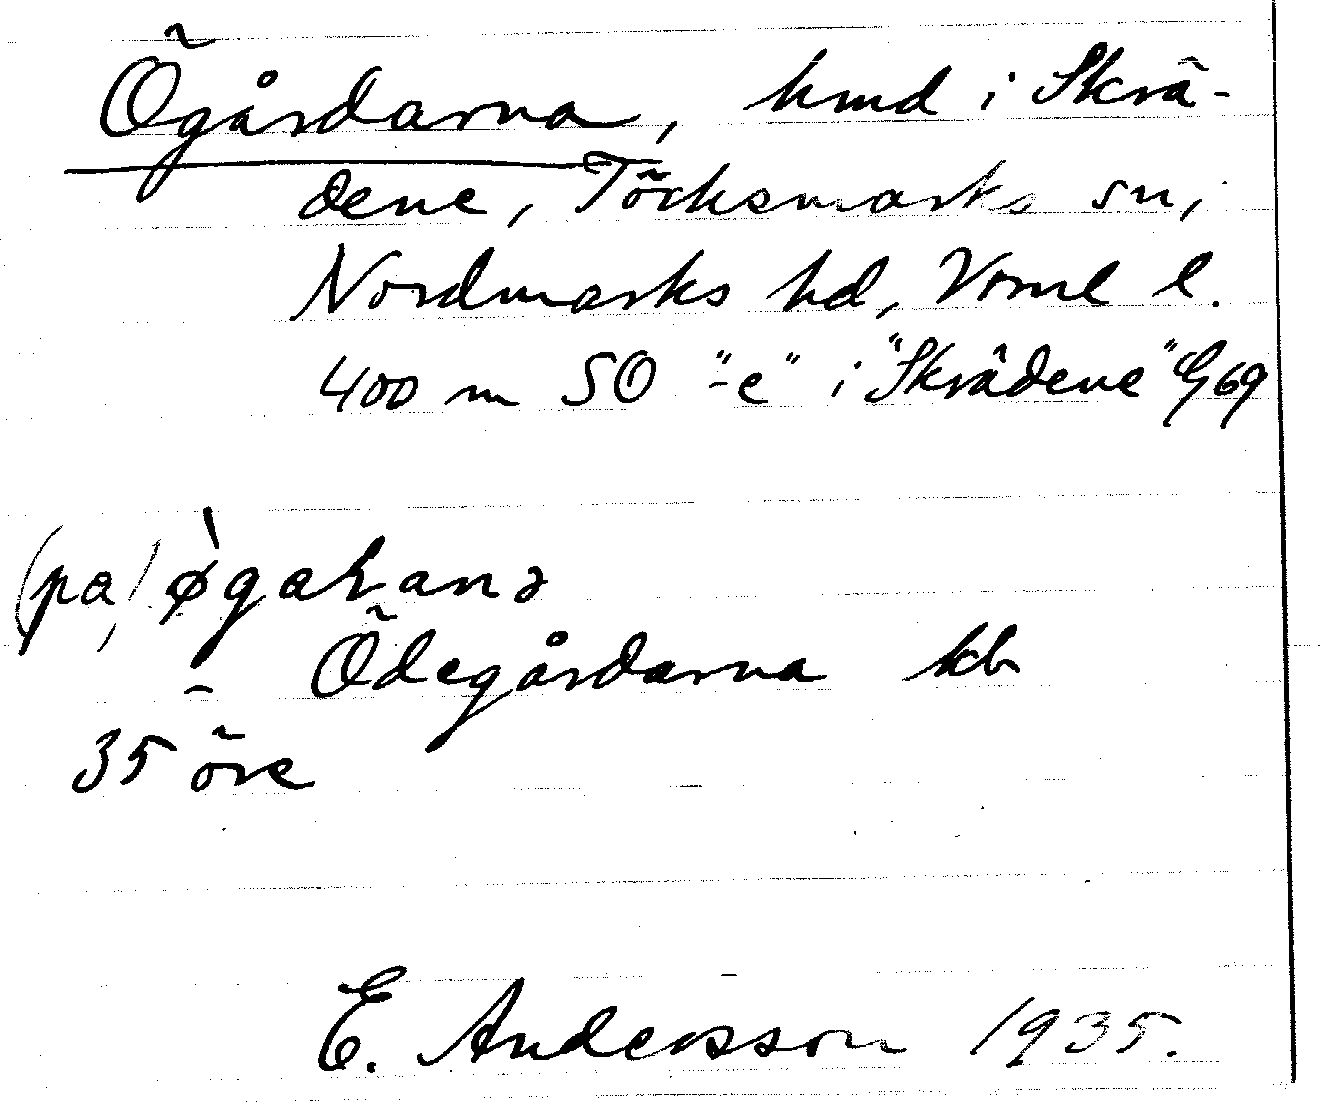 Ögårdarna, hmd i Skrä-
dene, Töcksmarks sn,
Nordmarks hd, Vrml l.
400 m SO "-e" i "Skrädene" G69
(på) øgaɫanə
Ödegårdarna kb
35 öre
E. Andersson 1935.